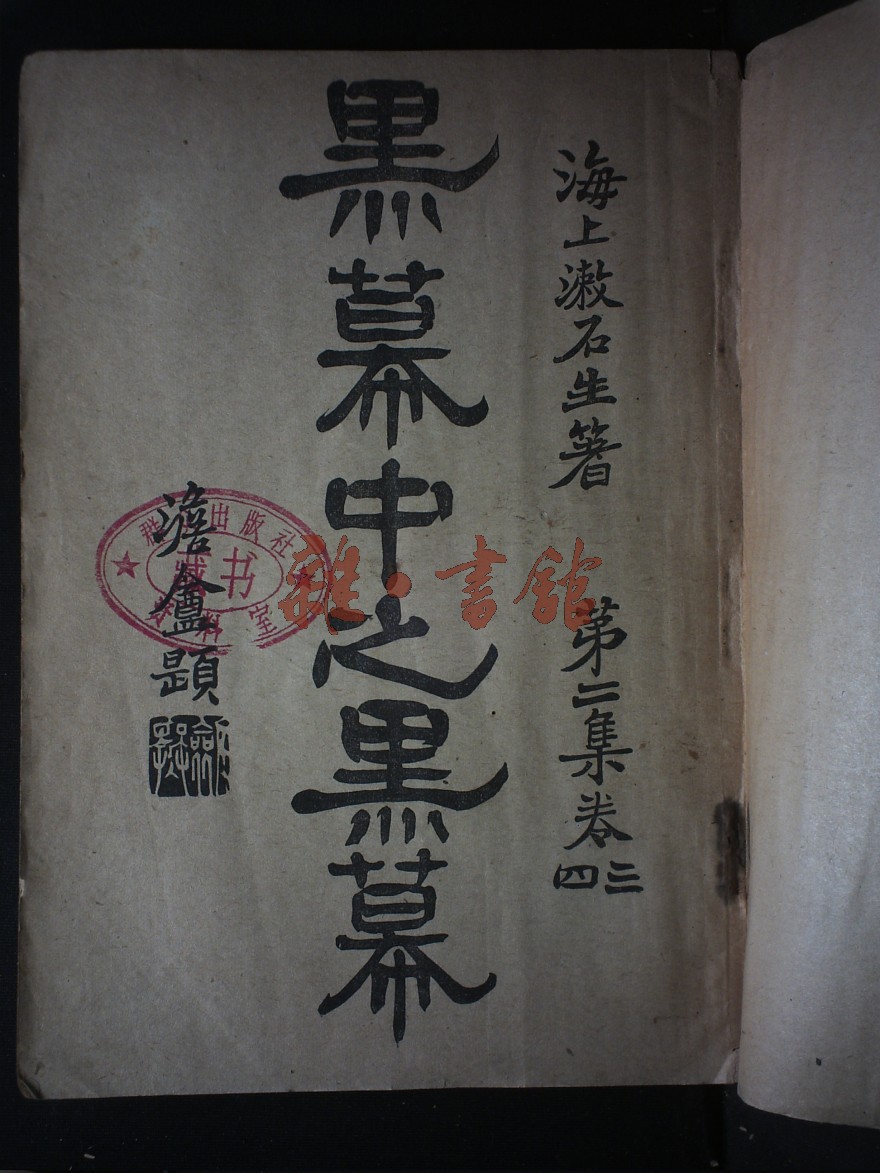 海上漱石生箸
第二集卷三四
黑幕中之黑幕
澹盦題
出版社
藏书
资料室
雜·書館